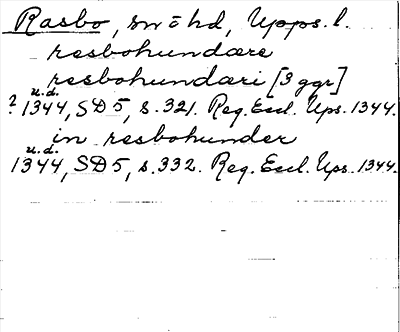 Rasbo, sn o hd, Upps. l.
resbohundære
resbohundæri [3 ggr]
u.d.
? 1344, SD5, s. 321. Reg. Eccl. Ups. 1344.
in resbohunder
u.d.
1344, SD5, s. 332. Reg. Eccl. Ups. 1344.